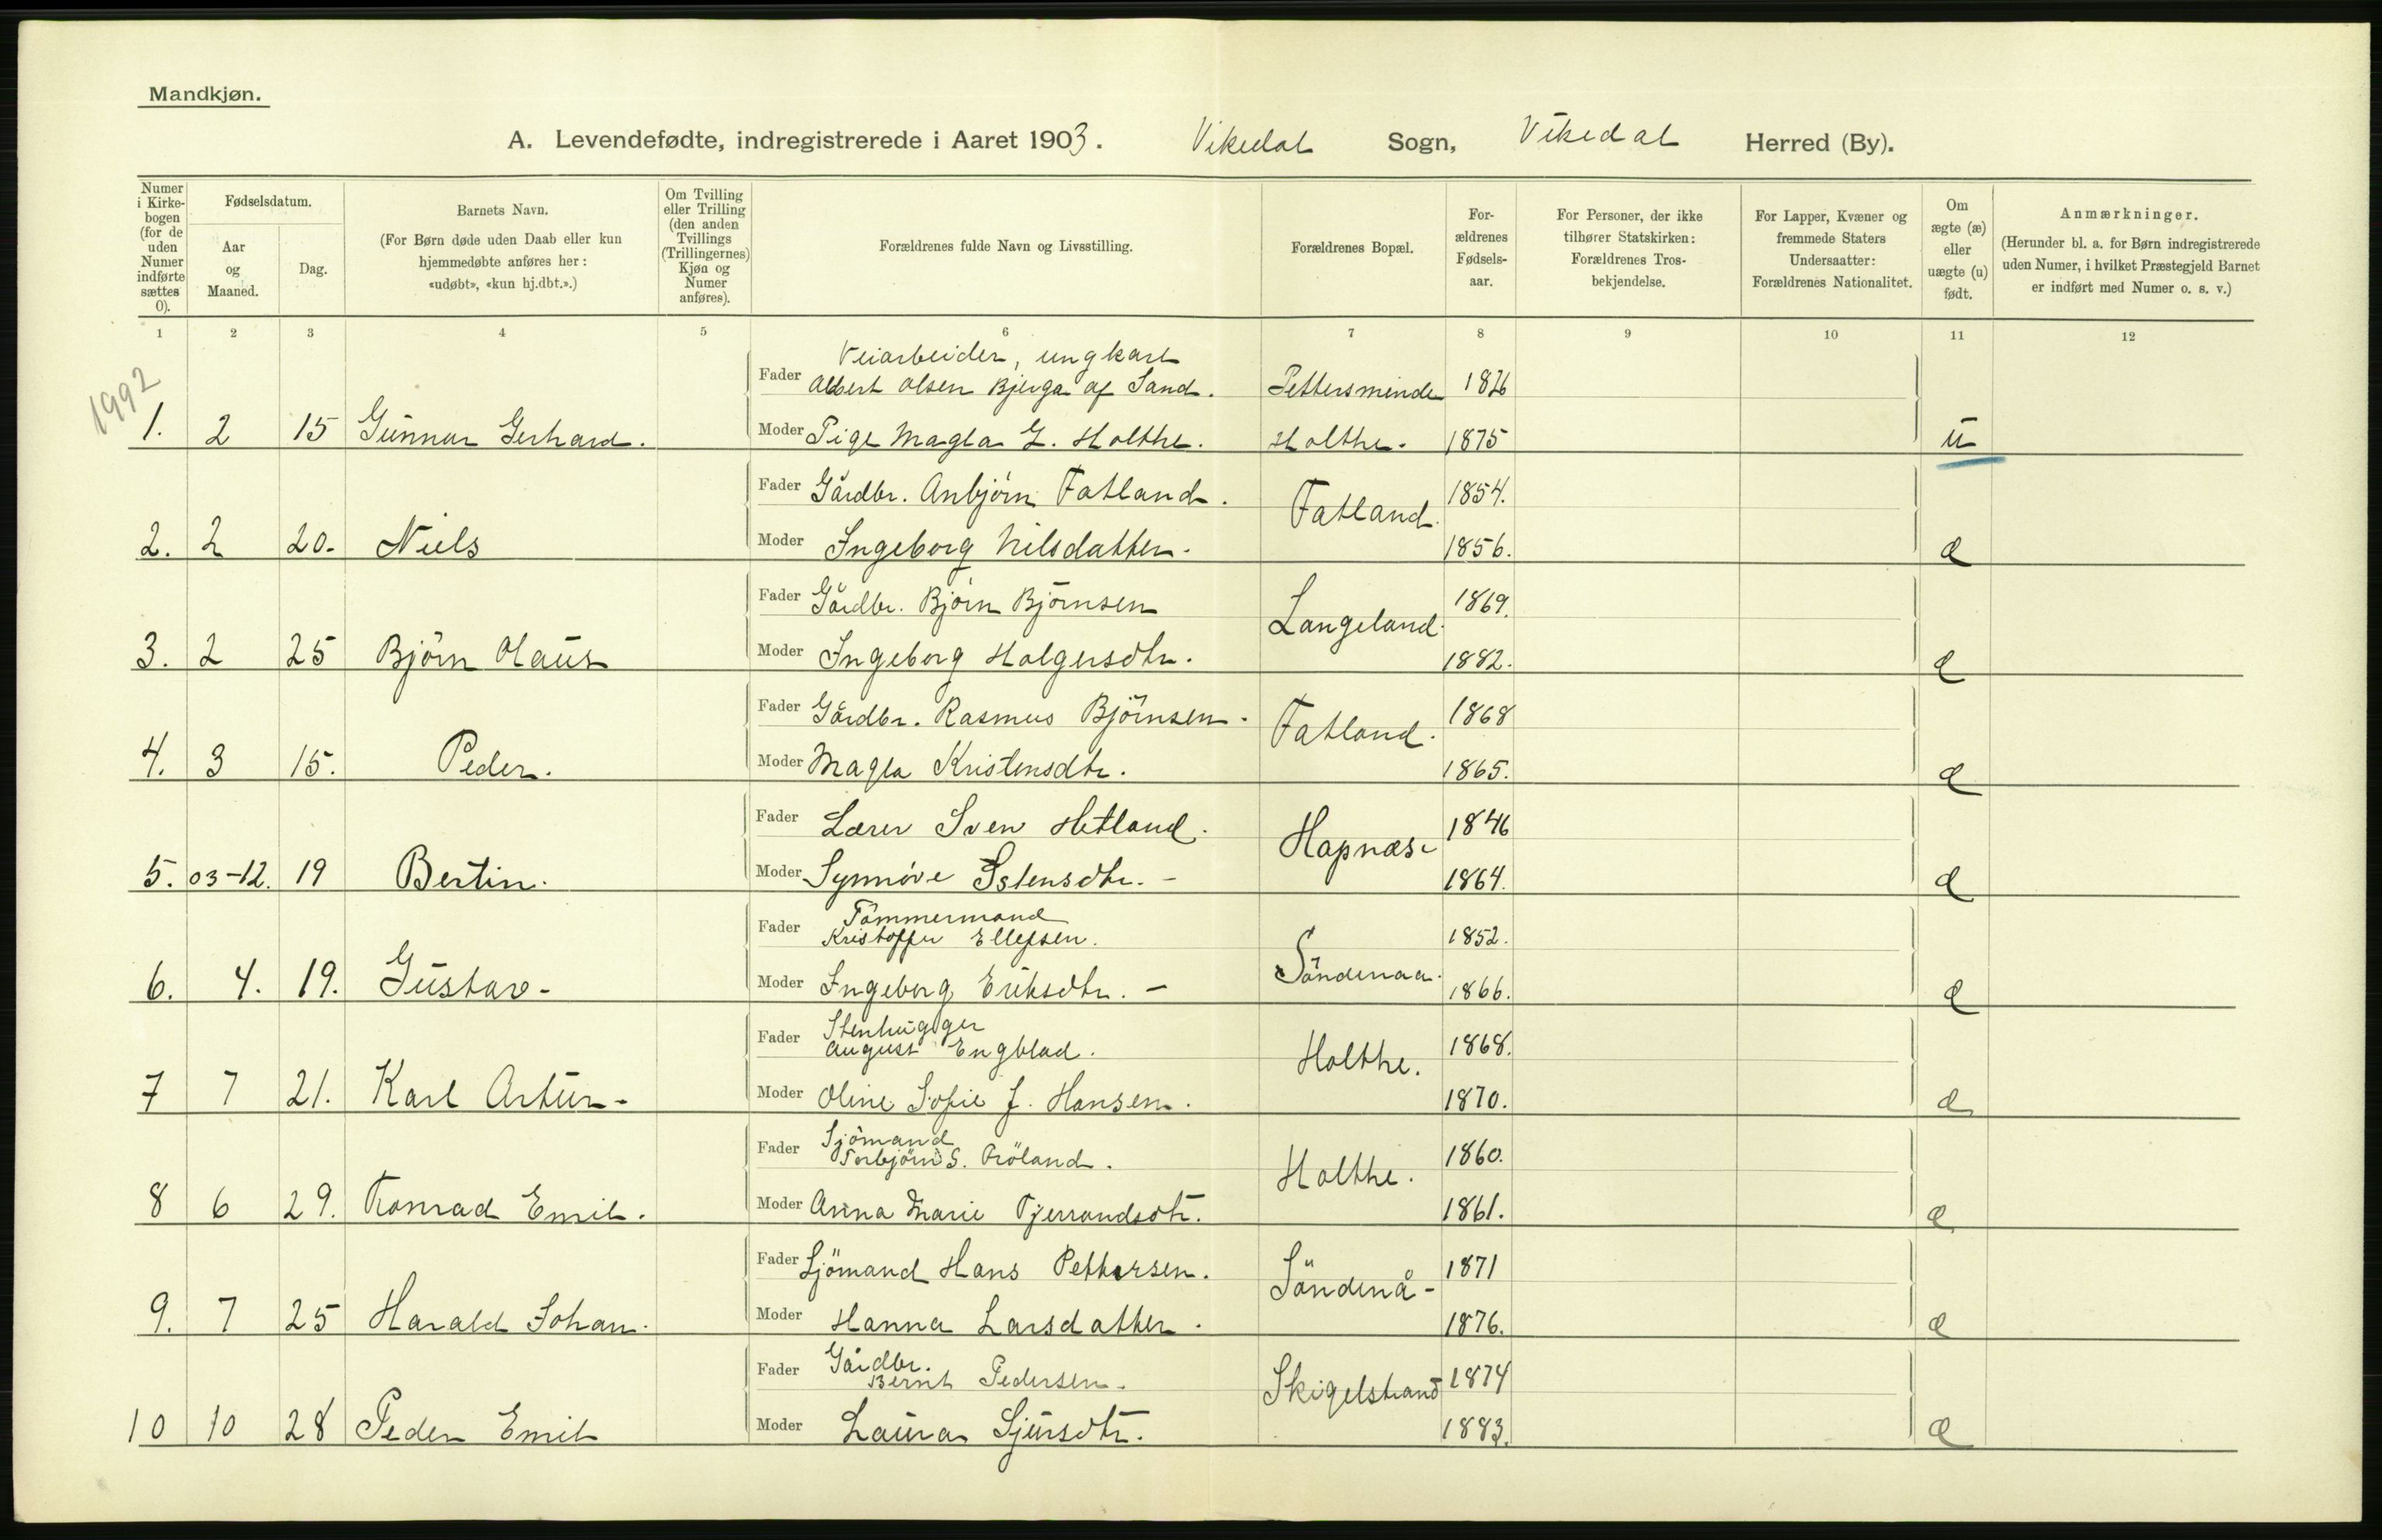 Mandkjøn.
A. Levendefødte, indregistrerede i Aaret 1903. Vikedal Sogn, Vikedal Herred (By).
Numer i Kirkebogen (for de uden Numer indførte sættes 0).
Fødselsdatum.
Aar og Maaned.
Dag.
Barnets Navn.
(For Børn døde uden Daab eller kun hjemmedøbte anføres her: «udøbt», «kun hj.dbt.».)
Om Tvilling eller Trilling (den anden Tvillings (Trillingernes) Kjøn og Numer anføres).
Forældrenes fulde Navn og Livsstilling.
Forældrenes Bopæl.
Forældrenes Fødselsaar.
For Personer, der ikke tilhører Statskirken: Forældrenes Trosbekjendelse.
For Lapper, Kvæner og fremmede Staters Undersaatter: Forældrenes Nationalitet.
Om ægte (æ) eller uægte (u) født.
Anmærkninger.
(Herunder bl. a. for Børn indregistrerede uden Numer, i hvilket Præstegjeld Barnet er indført med Numer o. s. v.)
1 2 3 4 5 6 7 8 9 10 11 12
1992
Veiarbeider, ungkarl
Fader Albert Olsen Bjerga af Sand. Pettersminde 1876
1. 2 15 Gunnar Gerhard. Moder Pige Magla G. Holthe. Holthe. 1875 u
Fader Gårdbr. Anbjörn Fatland. Fatland. 1854.
2. 2 20. Niels Moder Ingeborg Nilsdatter. 1856. æ
Fader Gårdbr. Björn Björnsen Langeland. 1869.
3. 2 25 Björn Olaus Moder Ingeborg Holgersdtr. 1882. æ
Fader Gårdbr. Rasmus Björnsen. Fatland. 1868
4. 3 15. Peder. Moder Magla Kristensdtr. 1865. æ
Fader Lærer Sven Hetland. Hapnæs. 1846
5. 03-12. 19 Bertin. Moder Synnöve 1864. æ
Tömmermand
Fader Kristoffer Ellefsen. Söndenaa. 1852.
6. 4. 19. Gustav - Moder Ingeborg Eriksdtr. - 1866. æ
Stenhugger
Fader August Engblad. Holthe. 1868.
7 7 21. Karl Artur - Moder Oline Sofie J. Hansen. 1870. æ
Sjömand
Fader Torbjörn S. Öröland. Holthe. 1860.
8 6 29. Konrad Emil. Moder Anna Marie Tjerrandsdtr. 1861. æ
Fader Sjömand Hans Pettersen. Söndenå - 1871
9. 7 25 Harald Johan. Moder Hanna Larsdatter. 1876. æ
Gårdbr.
Fader Bernt Pedersen. Skigelstrand 1874
10 10 28 Peder Emil Moder Laura Sjursdtr. 1883. æ